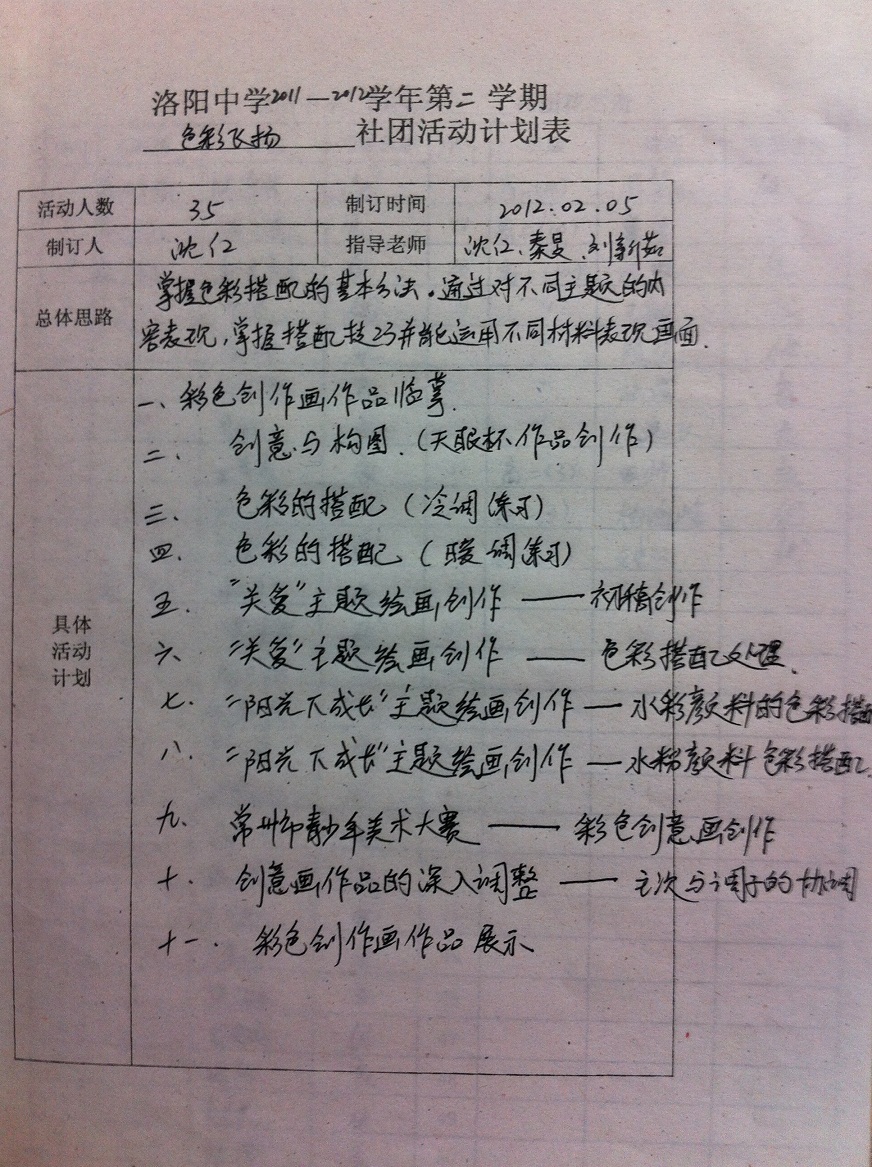 洛阳中学2011—2012学年第二学期
色彩飞扬 社团活动计划表
活动人数 35 制订时间 2012.02.05
制订人 沈仁 指导老师 沈仁、秦旻、刘新茹
总体思路 掌握色彩搭配的基本方法。通过对不同主题的内
容表现,掌握搭配技巧并能运用不同材料表现画面.
具体活动计划
一、彩色创作画作品临摹.
二、创意与构图.(天眼杯作品创作)
三、色彩的搭配(冷调练习)
四、色彩的搭配(暖调练习)
五、"关爱"主题绘画创作——初稿创作
六、"关爱"主题绘画创作——色彩搭配处理.
七.“阳光下成长”主题绘画创作—水彩颜料的色彩搭配
八.“阳光下成长”主题绘画创作—水粉颜料色彩搭配.
九、常州市青少年美术大赛——彩色创意画创作
十.创意画作品的深入调整——主次与调子的协调
十一.彩色创作画作品展示